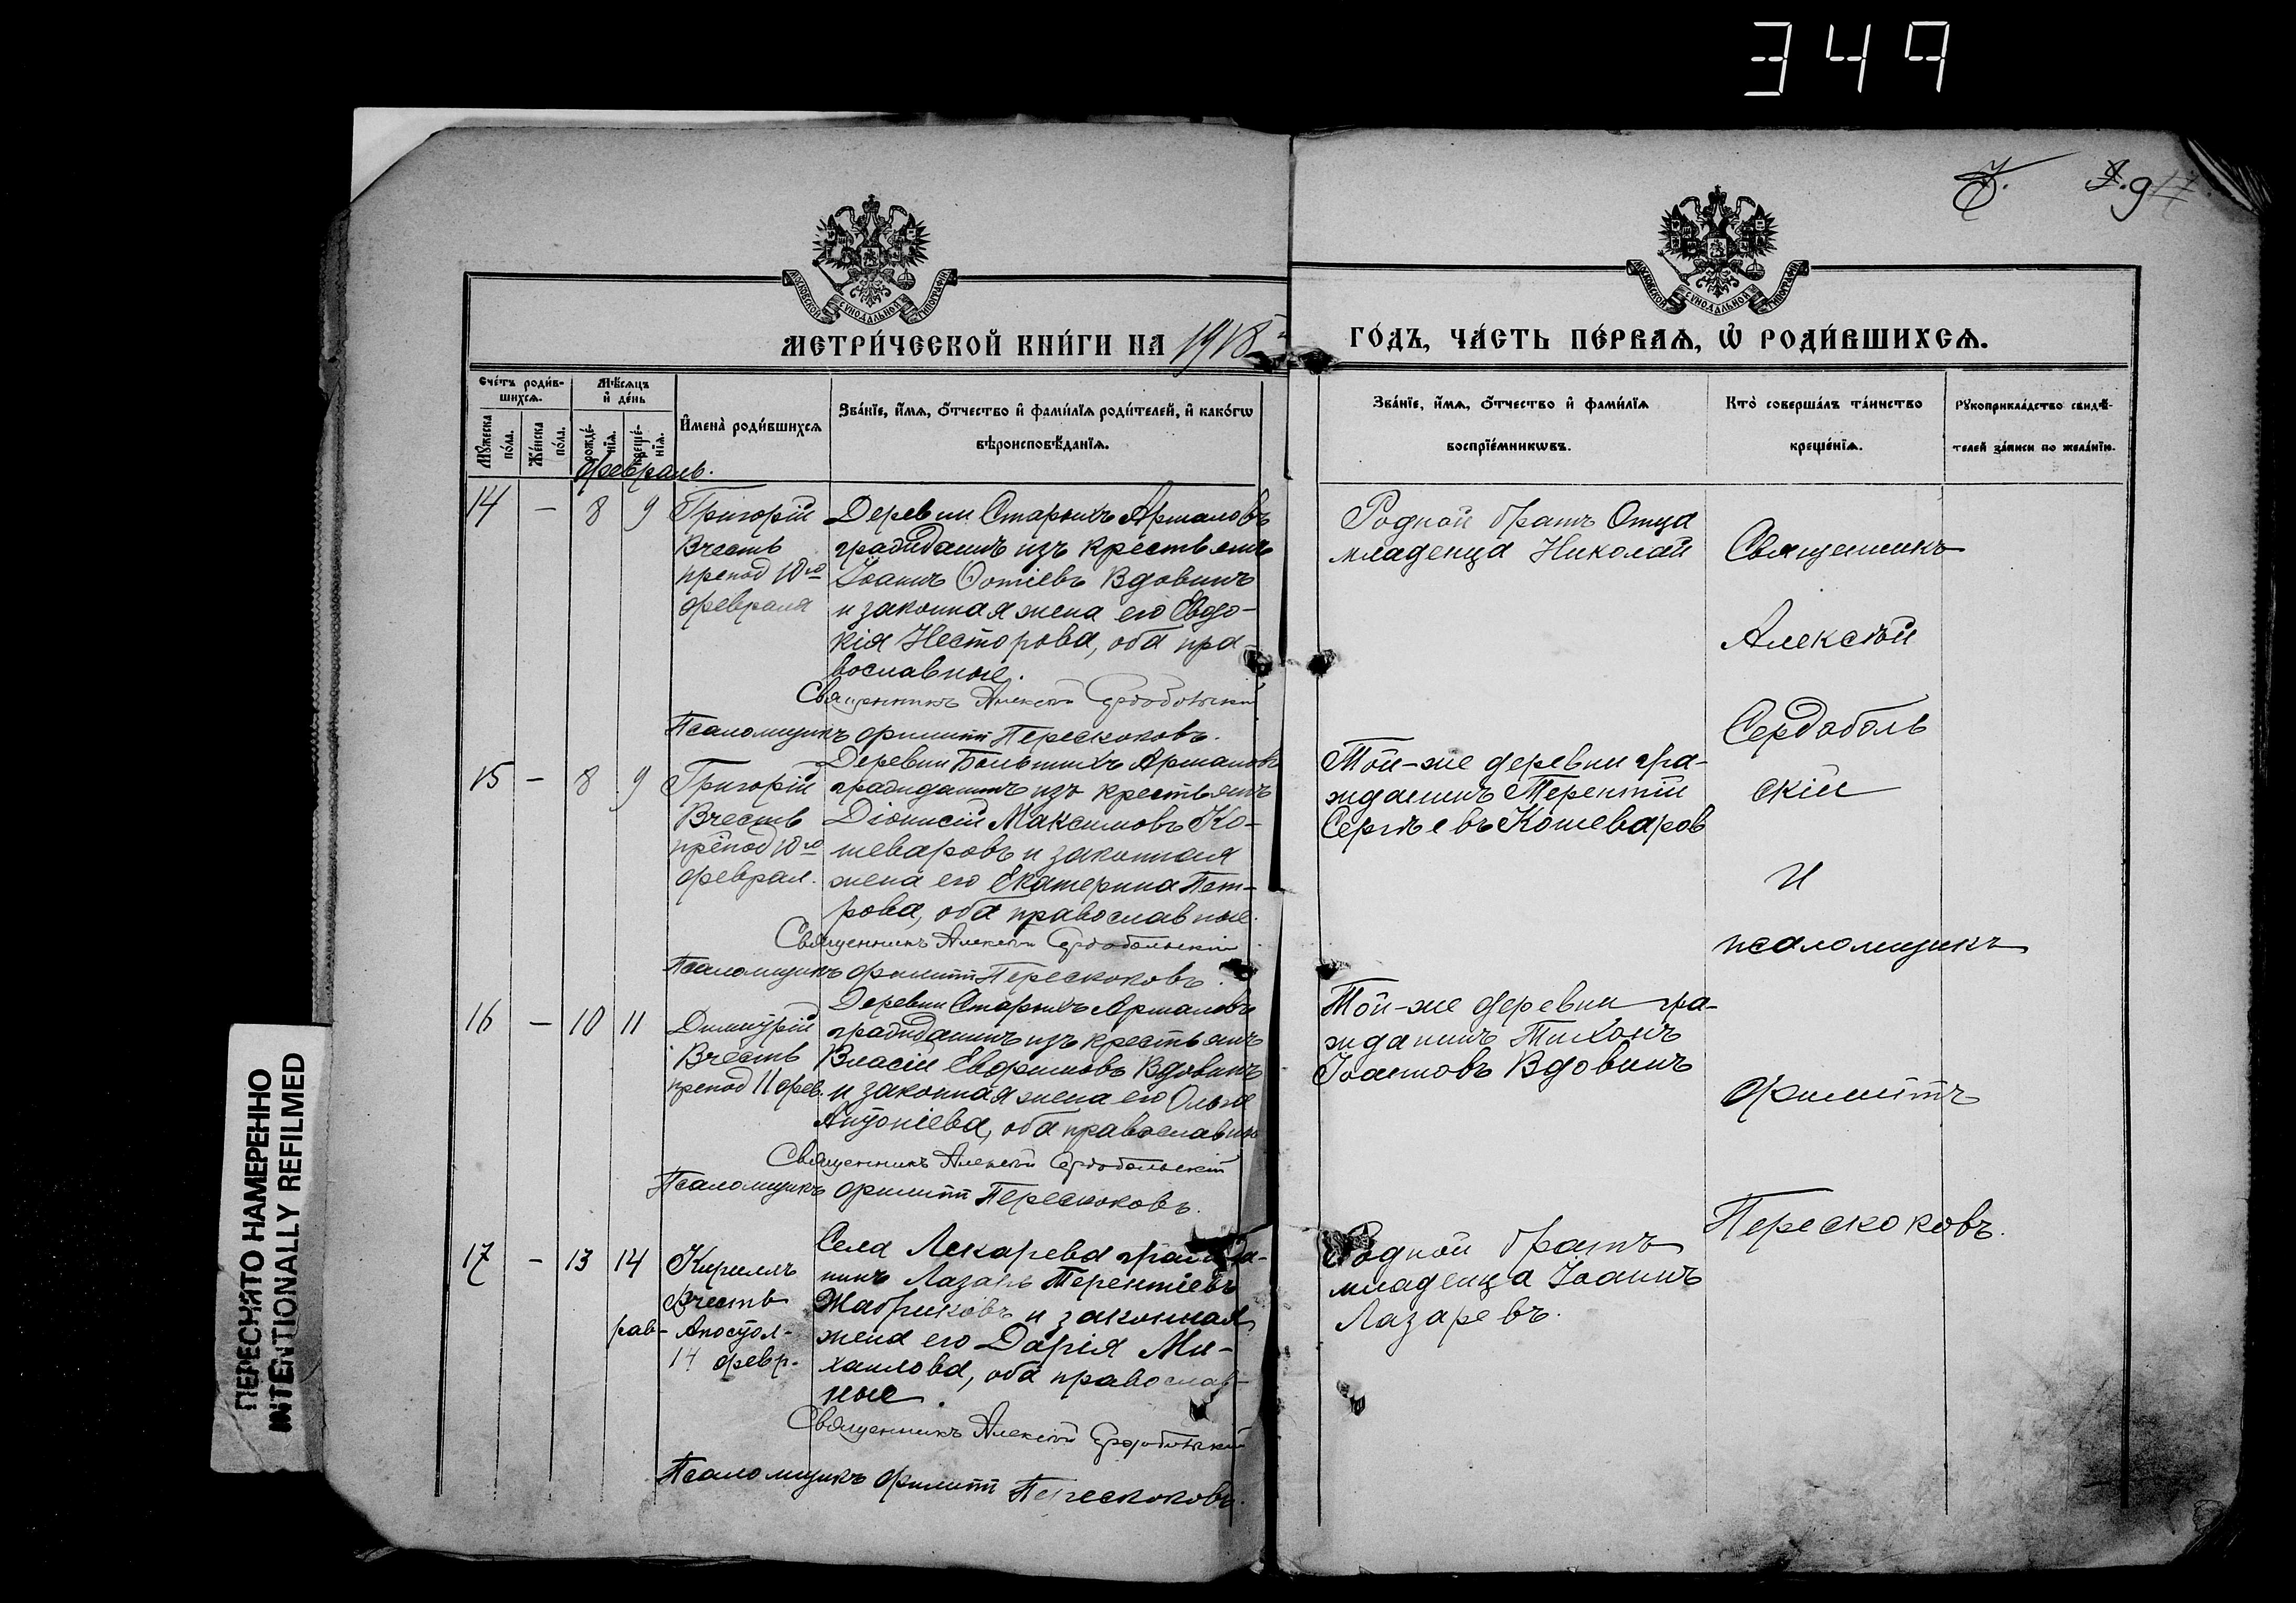 349
7. 9
МОСКОВСКОЙ СѴНОДАЛЬНОЙ ТИПОГРАФІИ
МОСКОВСКОЙ СѴНОДАЛЬНОЙ ТИПОГРАФІИ
МЕТРИ́ЧЕСКОЙ КНИ́ГИ НА 1918
ГО́ДЪ, ЧА́СТЬ ПЕ́РВАѦ, Ѡ҆ РОДИ́ВШИХСѦ.
Сче́тъ роди́в-
шихсѧ.
Мꙋ́жеска
по́ла.
Же́нска
по́ла.
Мѣ́сѧцъ
и҆ де́нь
рожде́-
нїѧ.
креще́-
нїѧ.
И҆мена̀ роди́вшихсѧ
Зва́нїе, и҆́мѧ, ѻ҆́тчество и҆ фами́лїѧ роди́телей, и҆ како́гѡ
вѣроисповѣ́данїѧ.
Зва́нїе, и҆́мѧ, ѻ҆́тчество и҆ фами́лїѧ
воспрїе́мникѡвъ.
Кто̀ соверша́лъ та́инство
креще́нїѧ.
Рꙋкоприкла́дство свидѣ́-
телей за́писи по жела́нїю.
февраль.
14 — 8 9
Григорій
Вчесть
препод 10го
февраля
Деревни Старыхъ Армаловъ
гражданинъ изъ крестьянъ
Іоаннъ Фотіевъ Вдовинъ
и законная жена его Евдо-
кія Несторова, оба пра-
вославные.
Священникъ Алексѣй Сердобольскій
Псаломщикъ Филиппъ Перескоковъ.
Родной братъ Отца
младенца Николай
15 — 8 9
Григорій
Вчесть
препод 10го
феврал.
Деревни Большихъ Армаловъ
гражданинъ изъ крестьянъ
Діонисій Максимовъ Ко-
шеваровъ и законная
жена его Екатерина Пет-
рова, оба православные.
Священникъ Алексѣй Сердобольскій
Псаломщикъ Филиппъ Перескоковъ.
Той-же деревни гра-
жданинъ Терентій
Сергѣевъ Кошеваров
16 — 10 11
Димитрій
Вчесть
препод 11 фев.
Деревни Старыхъ Армаловъ
гражданинъ изъ крестьянъ
Власій Евфимовъ Вдовинъ
и законная жена его Ольга
Антоніева, оба православны
Священникъ Алексѣй Сердобольскій
Псаломщикъ Филиппъ Перескоковъ.
Той-же деревни гра-
жданинъ Тихонъ
Іоанновъ Вдовинъ
17 — 13 14
Кириллъ
Вчесть
рав- Апостол-
14 февр.
Села Лекарева гражда-
нинъ Лазарь Терентіевъ
Жабриковъ и законная
жена его Дарія Ми-
хаилова, оба православ-
ные.
Священникъ Алексѣй Сердобольскій
Псаломщикъ Филиппъ Перескоковъ.
Родной братъ
младенца Іоаннъ
Лазаревъ.
Священникъ
Алексѣй
Сердоболь
скій
и
псаломщикъ
Филиппъ
Перескоковъ.
ПЕРЕСНЯТО НАМЕРЕННО
INTENTIONALLY REFILMED